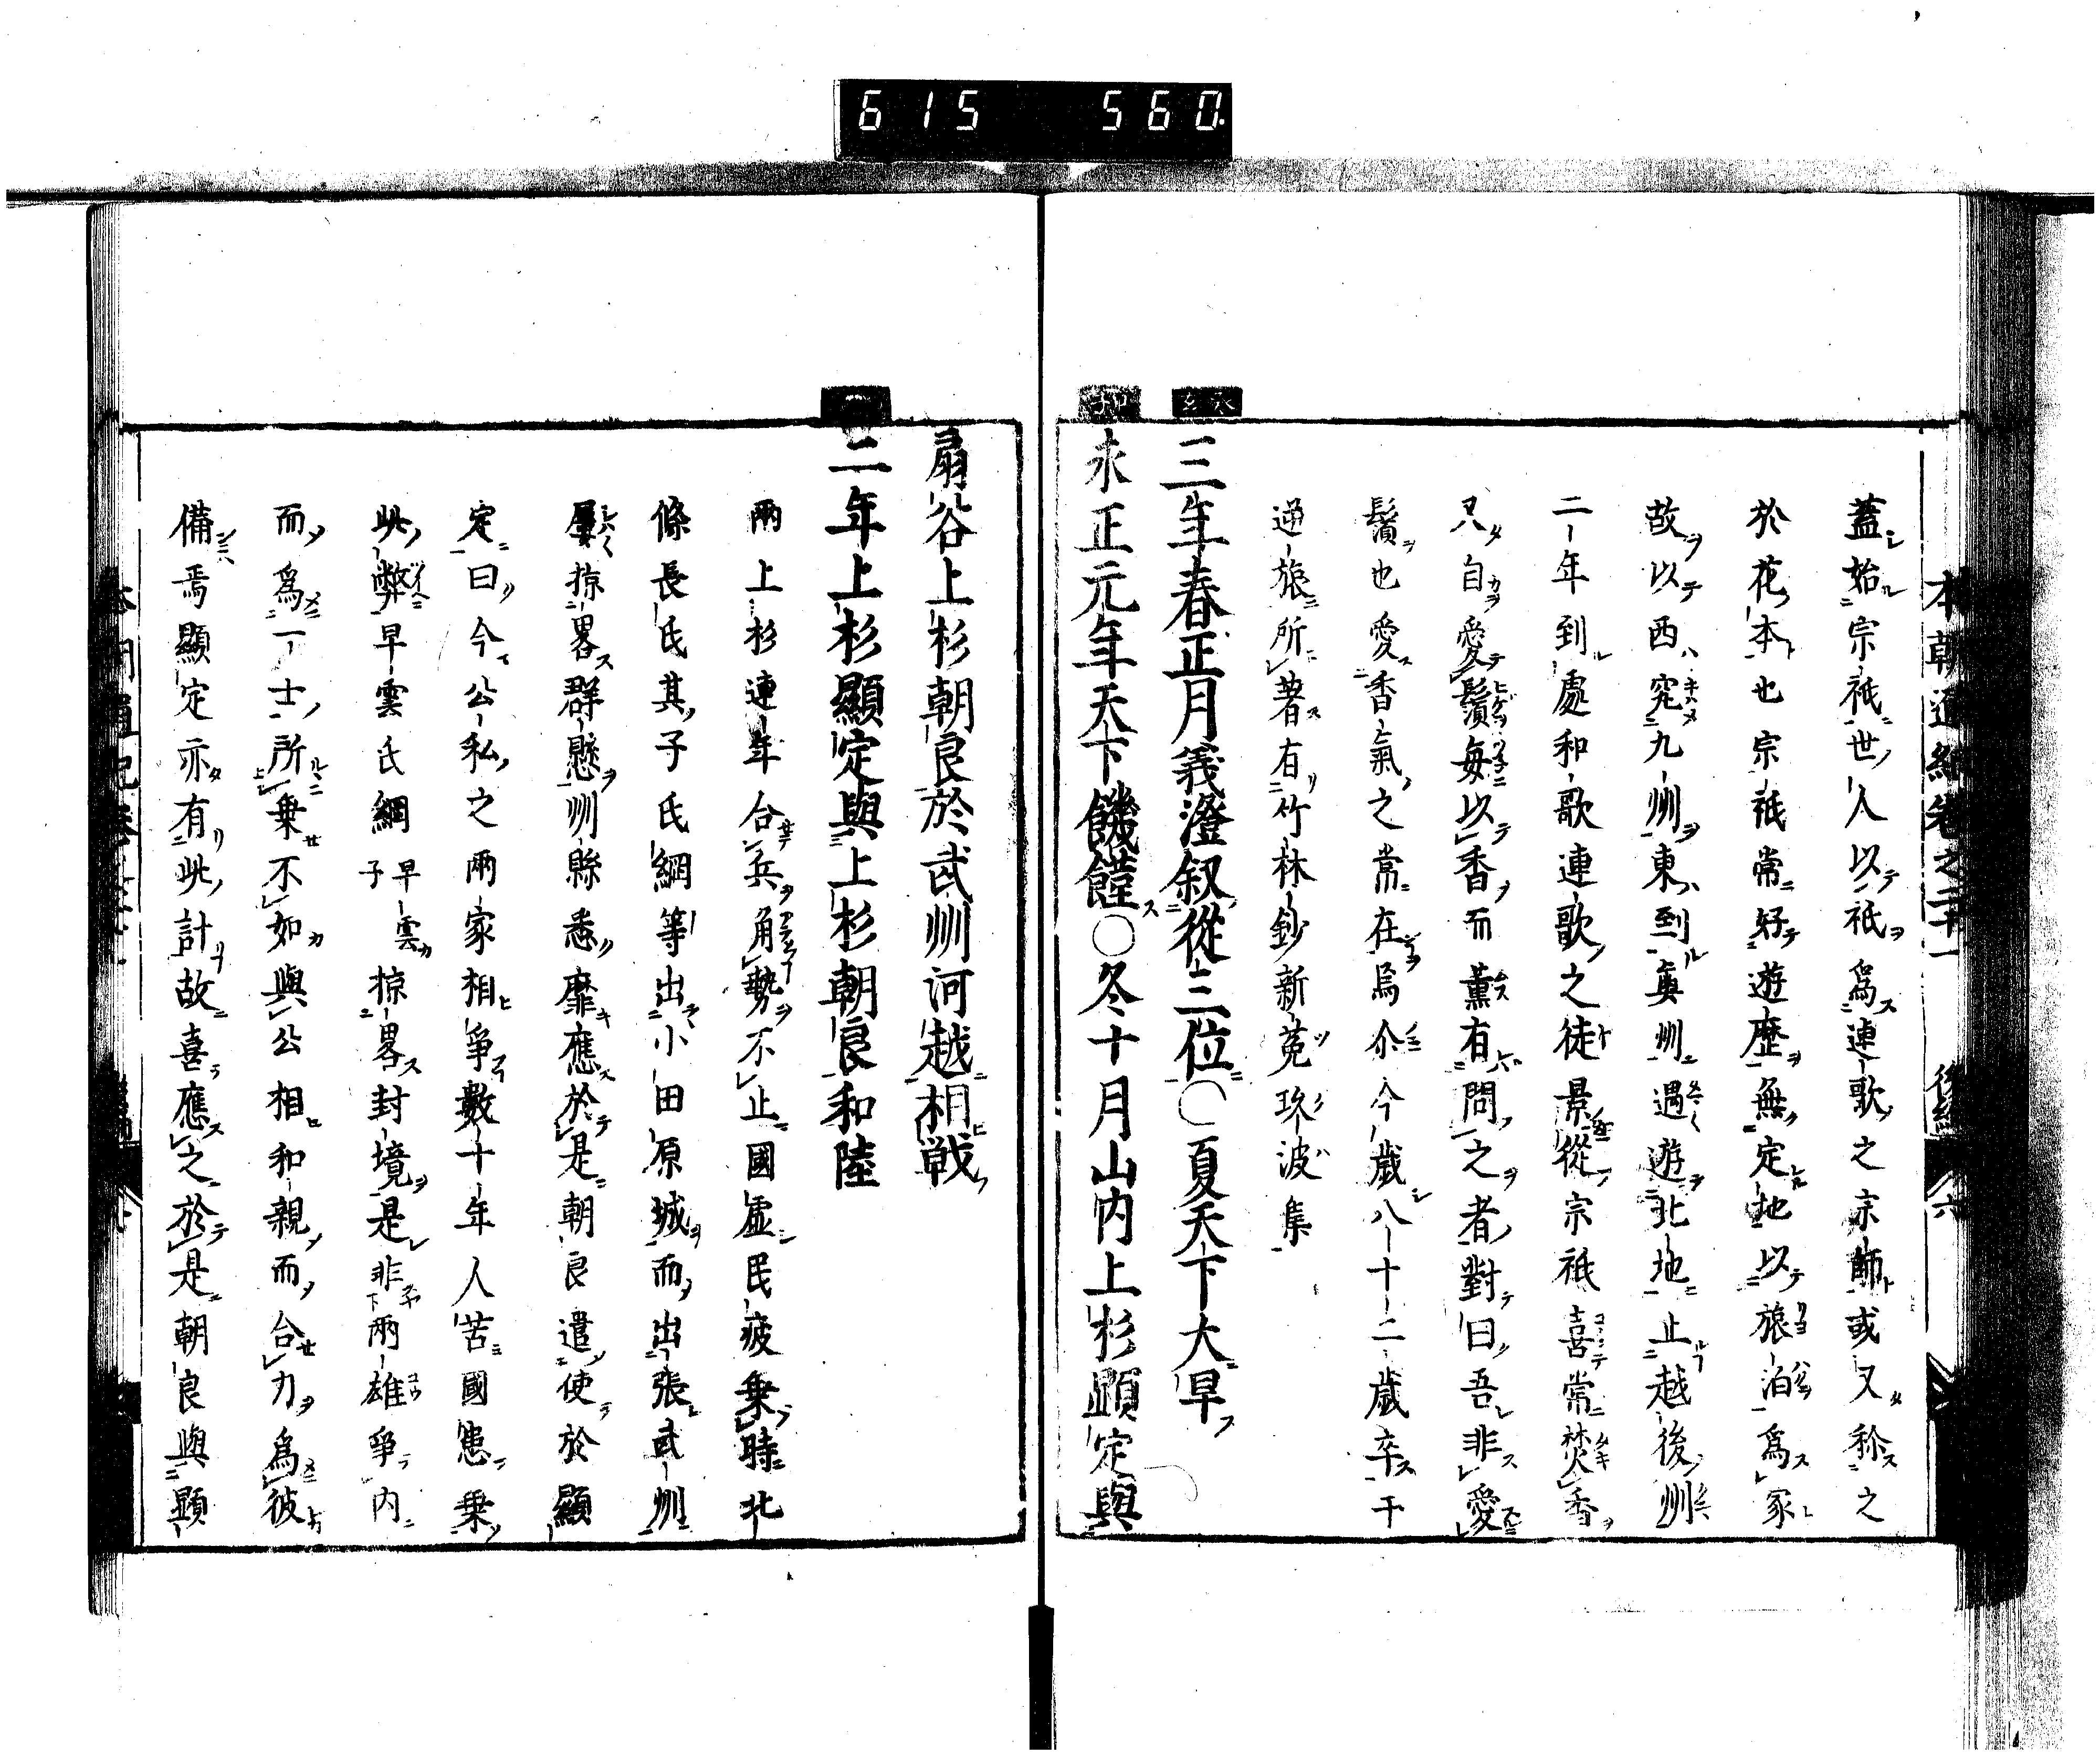 615 560
本朝通紀卷之二十一 後編 六
蓋始宗祇世人以祇爲連歌之宗師或又称之
於花本也宗祇常好遊歷無定地以旅泊爲家
故以西究九州東到奧州遇遊北地止越後州
二年到處和歌連歌之徒景從宗祇喜常焚香
只自愛鬚每以香而薰有問之者對曰吾非愛
鬚也愛香氣之常在焉尒今歲八十二歲卒于
逆旅所著有竹林鈔新菟玖波集
三年春正月義澄叙從三位○夏天下大旱
永正元年天下饑饉○冬十月山内上杉顯定與
扇谷上杉朝良於武州河越相戦
二年上杉顯定與上杉朝良和陸
兩上杉連年合兵角勢不止國虛民疲乗時北
條長氏其子氏綱等出小田原城而出張武州
屢掠畧群懸州縣悉靡應於是朝良遣使於顯
定曰今公私之兩家相爭數十年人苦國患乗
此弊早雲氏綱早雲子掠畧封境是非兩雄爭内
而爲一士所乗不如與公相和親而合力爲彼
備焉顯定亦有此計故喜應之於是朝良與顯